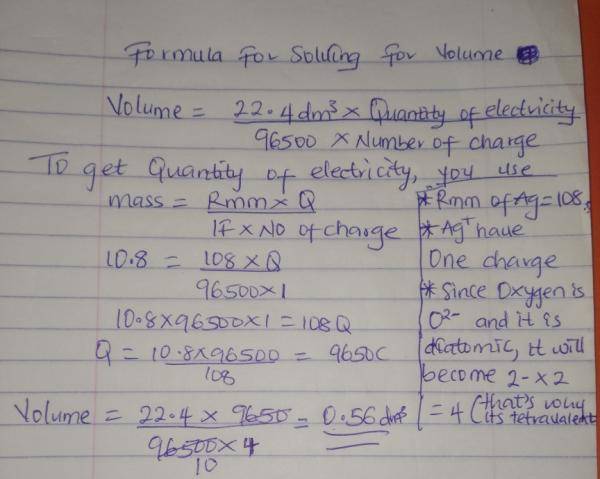 Formula for Solving for Volume
Volume = 22.4dm³ × Quantity of electricity
96500 × Number of charge
To get Quantity of electricity, you use
mass = Rmm × Q
1F × No of charge
10.8 = 108 × Q
96500×1
10.8×96500×1 = 108Q
Q = 10.8×96500 = 9650C
108
* Rmm of Ag = 108.
* Ag⁺ have
One charge
* Since Oxygen is
O²⁻ and it is
diatomic, it will
become 2- × 2
= 4 (that's why
its tetravalent
Volume = 22.4 × 9650 = 0.56dm³
96500×4
10